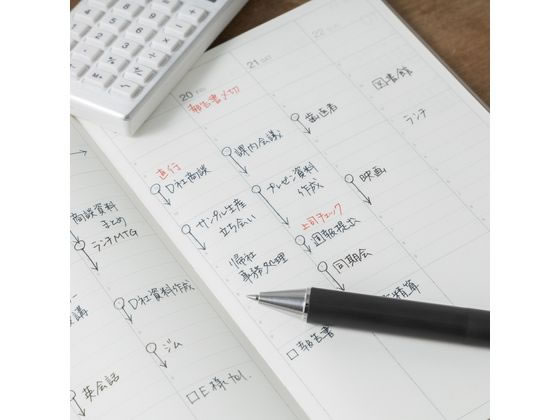 20 FRI
21 SAT
22 SUN
報告書〆切
直行
D社商談
サンプル生産
立ち会い
帰社
事務処理
課内会議
プレゼン資料
作成
上司チェック
回報提出
同期会
歯医者
映画
図書館
ランチ
商談資料
まとめ
ランチMTG
D社資料作成
ジム
英会話
□E様tel.
□報告書
精算